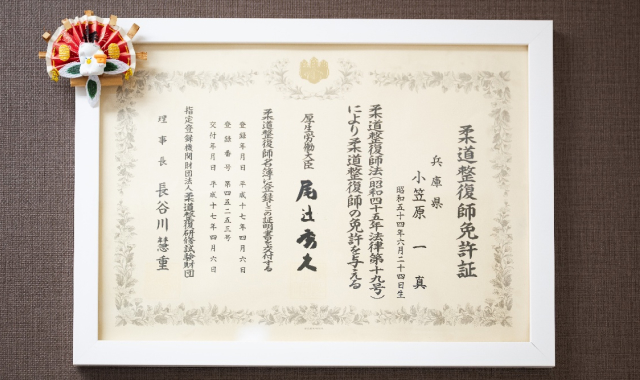 柔道整復師免許証
兵庫県
小笠原一真
昭和五十四年六月二十四日生
柔道整復師法(昭和四十五年法律第十九号)
により柔道整復師の免許を与える
厚生労働大臣 尾辻秀久
柔道整復師名簿に登録しこの証明書を交付する
登録年月日 平成十七年四月六日
登録番号 第四五二五三号
交付年月日 平成十七年四月六日
指定登録機関財団法人柔道整復研修試験財団
理事長 長谷川慧重